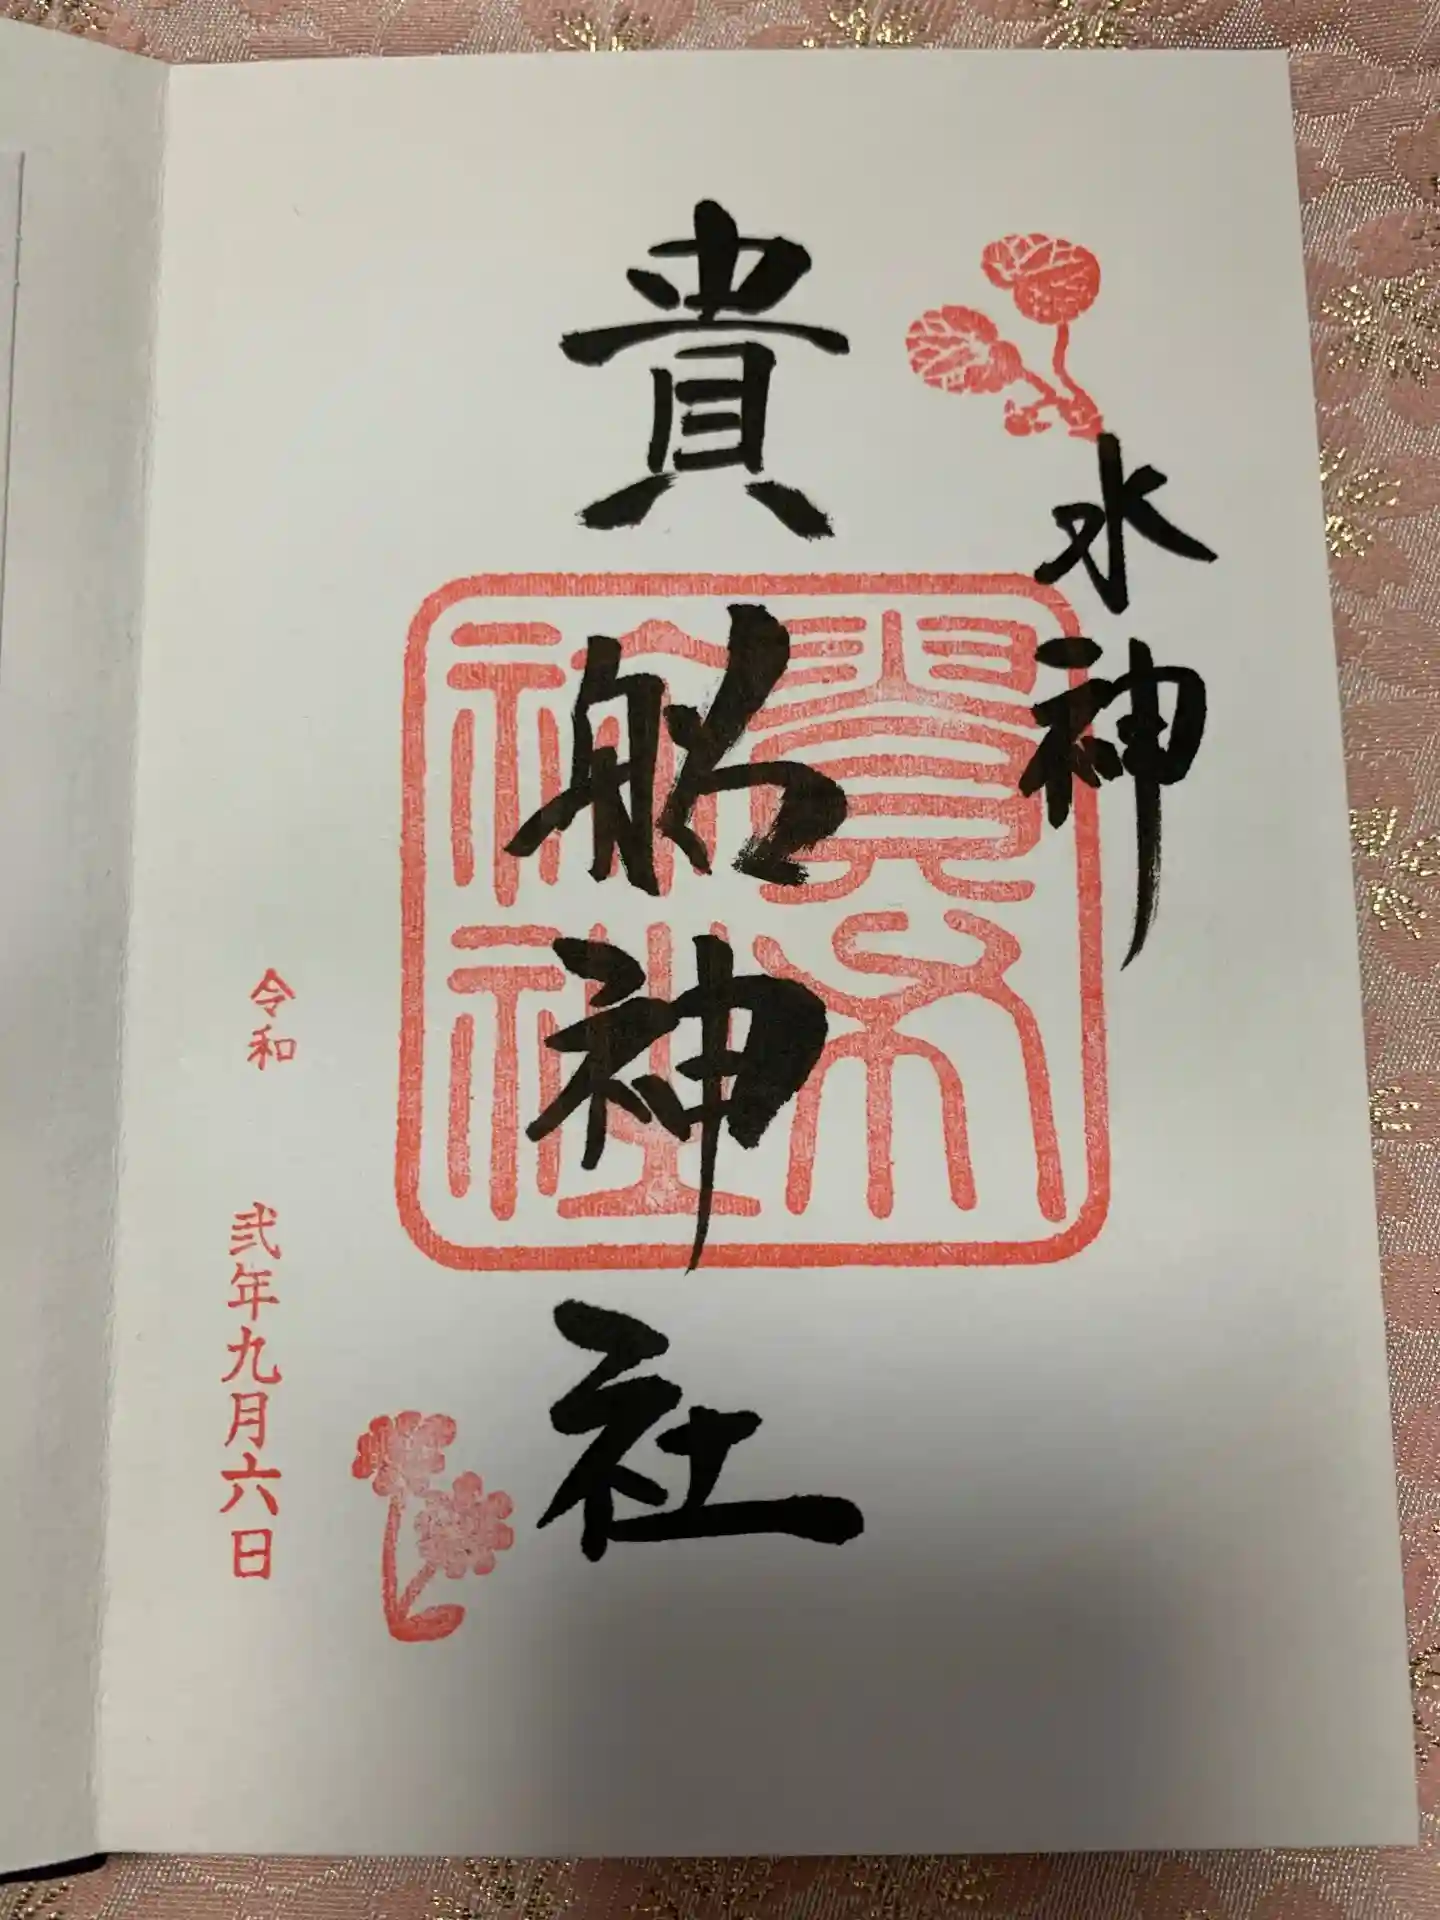 水神
貴船神社
貴布
祢社
令和 弐年九月六日